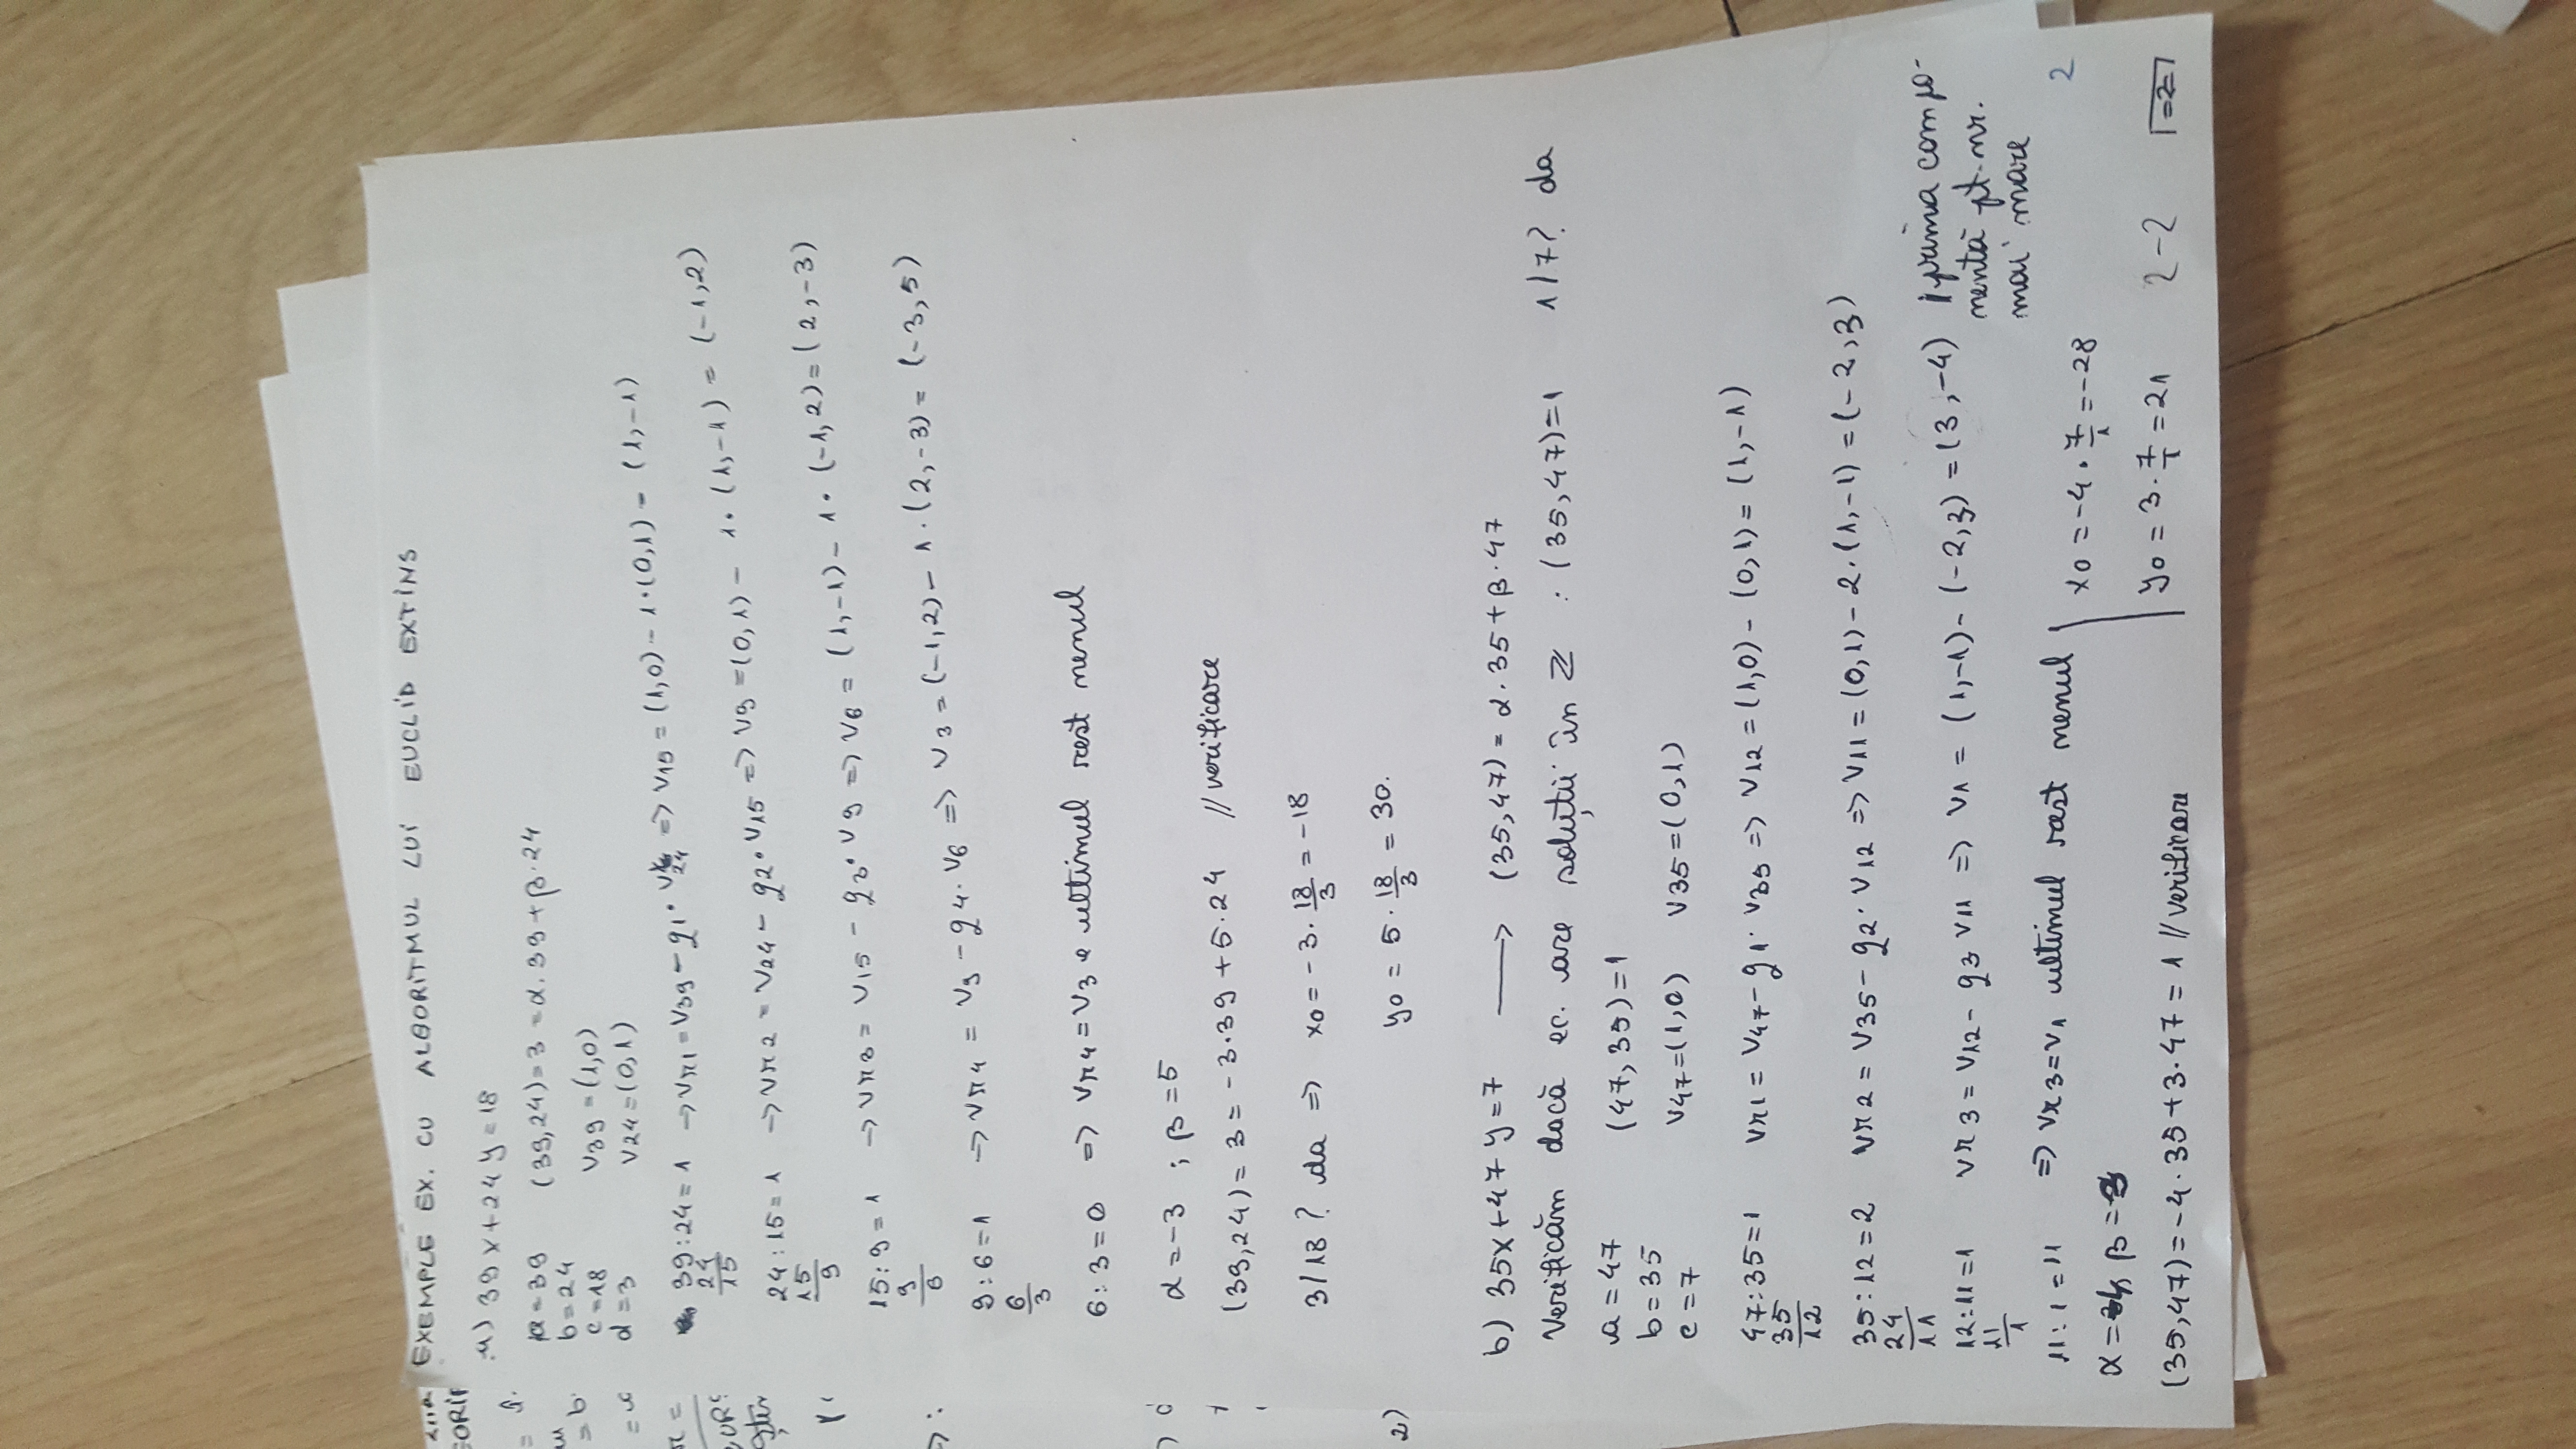 EXEMPLE EX. CU ALGORITMUL LUI EUCLID EXTINS
a) 39x+24y=18
a=39 (39,24)=3=α.39+β.24
b=24
c=18 V39=(1,0)
d=3 V24=(0,1)
39:24=1 →Vr1=V39-q1·V24 => V15=(1,0)-1·(0,1)=(1,-1)
24
15
24:15=1 →Vr2=V24-q2·V15=>V9=(0,1)-1·(1,-1)=(-1,2)
15
9
15:9=1 →Vr3=V15-q3·V9=>V6=(1,-1)-1·(-1,2)=(2,-3)
9
6
9:6=1 →Vr4=V9-q4·V6=>V3=(-1,2)-1·(2,-3)=(-3,5)
6
3
6:3=0 => Vr4=V3 e ultimul rest nenul
α=-3 ; β=5
(39,24)=3=-3·39+5·24 //verificare
3/18? da => x0=-3·18/3=-18
y0=5·18/3=30.
b) 35x+47y=7 → (35,47)=α.35+β·47
Verificăm dacă ec. are soluții în Z : (35,47)=1 1/7? da
a=47 (47,35)=1
b=35
c=7 V47=(1,0) V35=(0,1)
47:35=1 Vr1=V47-q1·V35=>V12=(1,0)-(0,1)=(1,-1)
35
12
35:12=2 Vr2=V35-q2·V12=>V11=(0,1)-2·(1,-1)=(-2,3)
24
11
12:11=1 Vr3=V12-q3 V11=>V1=(1,-1)-(-2,3)=(3,-4) prima compo-
11
1
nentă pt. nr.
mai mare
11:1=11 => Vr3=V1 ultimul rest nenul
α= β=
(35,47)=-4·35+3·47=1 //verificare
x0=-4·7/1=-28
y0=3·7/1=21
2-2
2
=2=